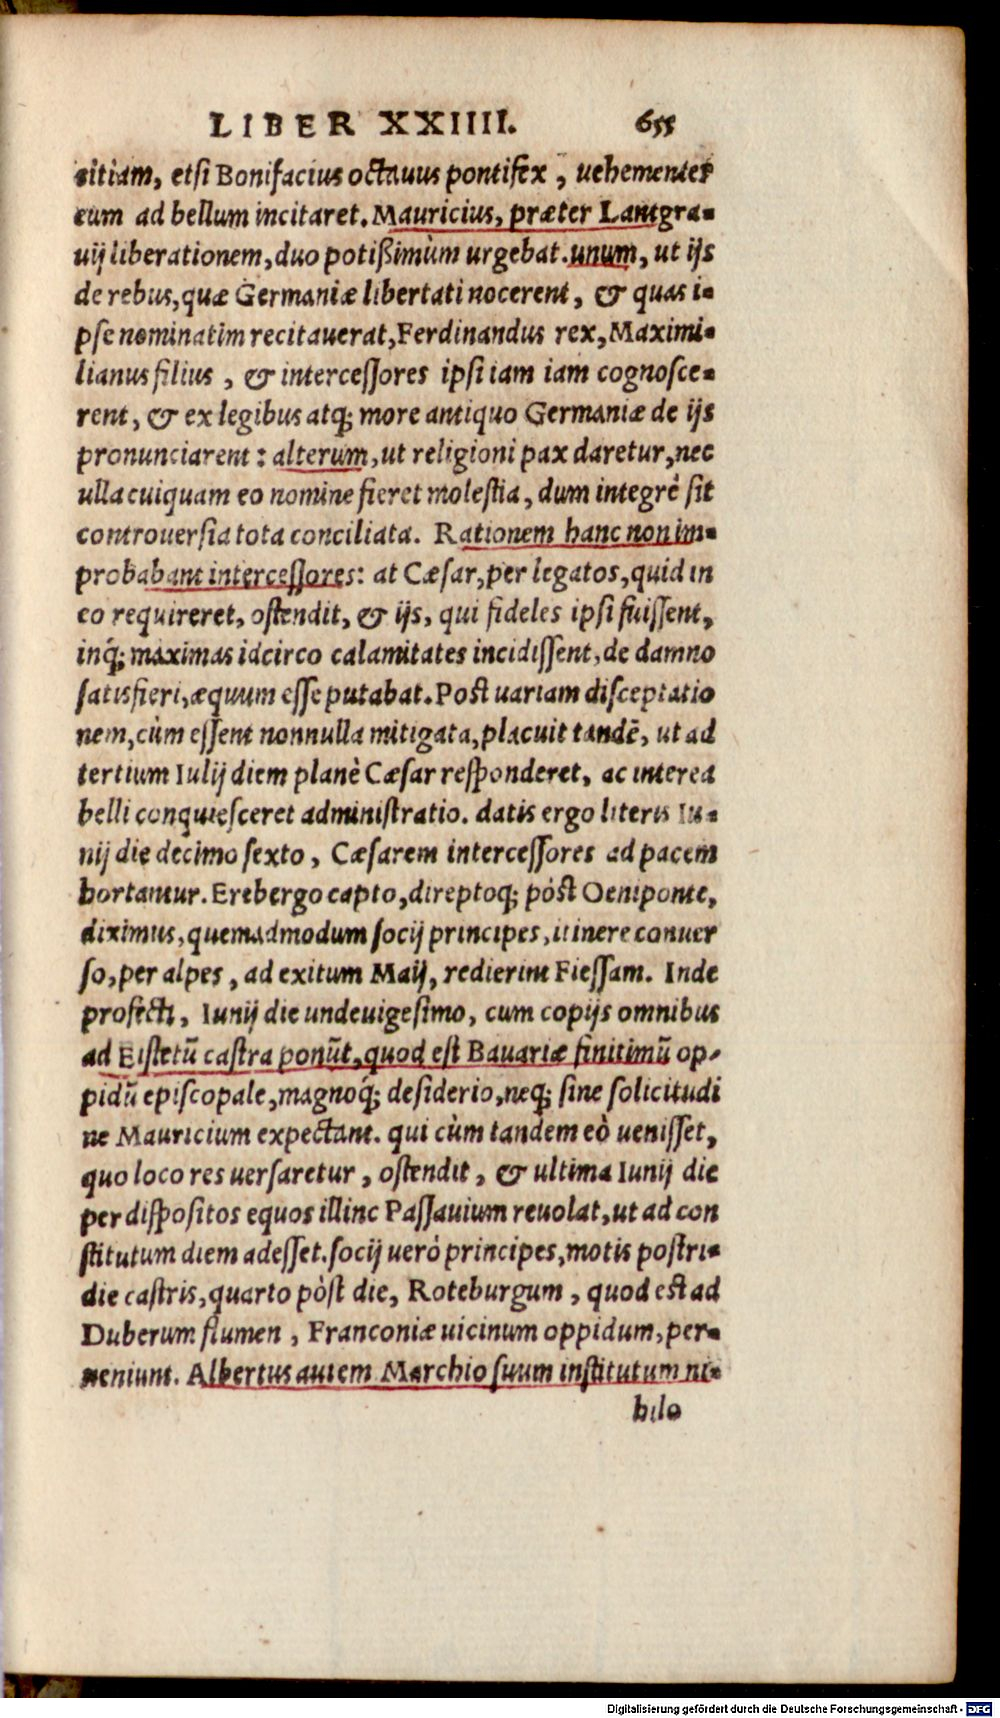 LIBER XXIIII. 655
citiam, etsi Bonifacius octauus pontifex, uehementer
eum ad bellum incitaret. Mauricius, præter Lantgra-
uij liberationem, duo potißimùm urgebat. unum, ut ijs
de rebus, quæ Germaniæ libertati nocerent, & quas i-
pse nominatim recitauerat, Ferdinandus rex, Maximi-
lianus filius, & intercessores ipsi iam iam cognosce-
rent, & ex legibus atq; more antiquo Germaniæ de ijs
pronunciarent: alterum, ut religioni pax daretur, nec
ulla cuiquam eo nomine fieret molestia, dum integrè sit
controuersia tota conciliata. Rationem hanc non im-
probabant intercessores: at Cæsar, per legatos, quid in
eo requireret, ostendit, & ijs, qui fideles ipsi fuissent,
inq́; maximas idcirco calamitates incidissent, de damno
satisfieri, æquum esse putabat. Post uariam disceptatio
nem, cùm essent nonnulla mitigata, placuit tandē, ut ad
tertium Iulij diem planè Cæsar responderet, ac interea
belli conquiesceret administratio. datis ergo literis Iu-
nij die decimo sexto, Cæsarem intercessores ad pacem
hortantur. Erebergo capto, direptoq; pòst Oeniponte,
diximus, quemadmodum socij principes, itinere conuer
so, per alpes, ad exitum Maij, redierint Fiessam. Inde
profecti, Iunij die undeuigesimo, cum copijs omnibus
ad Eistetū castra ponūt, quod est Bauariæ finitimū op-
pidū episcopale, magnoq́; desiderio, neq; sine solicitudi
ne Mauricium expectant. qui cùm tandem eò uenisset,
quo loco res uersaretur, ostendit, & ultima Iunij die
per dispositos equos illinc Passauium reuolat, ut ad con
stitutum diem adesset. socij uerò principes, motis postri-
die castris, quarto pòst die, Roteburgum, quod est ad
Duberum flumen, Franconiæ uicinum oppidum, per-
ueniunt. Albertus autem Marchio suum institutum ni-
hilo
Digitalisierung gefördert durch die Deutsche Forschungsgemeinschaft - DFG